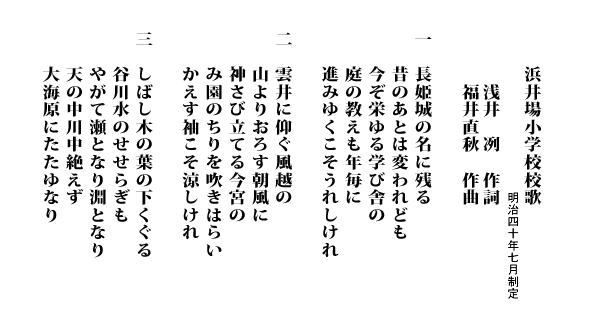 浜井場小学校校歌
明治四十年七月制定
浅井　冽　作詞
福井直秋　作曲
一　長姫城の名に残る
昔のあとは変われども
今ぞ栄ゆる学び舎の
庭の教えも年毎に
進みゆくこそうれしけれ
二　雲井に仰ぐ風越の
山よりおろす朝風に
神さび立てる今宮の
み園のちりを吹きはらい
かえす袖こそ涼しけれ
三　しばし木の葉の下くぐる
谷川水のせせらぎも
やがて瀬となり淵となり
天の中川中絶えず
大海原にたたゆなり